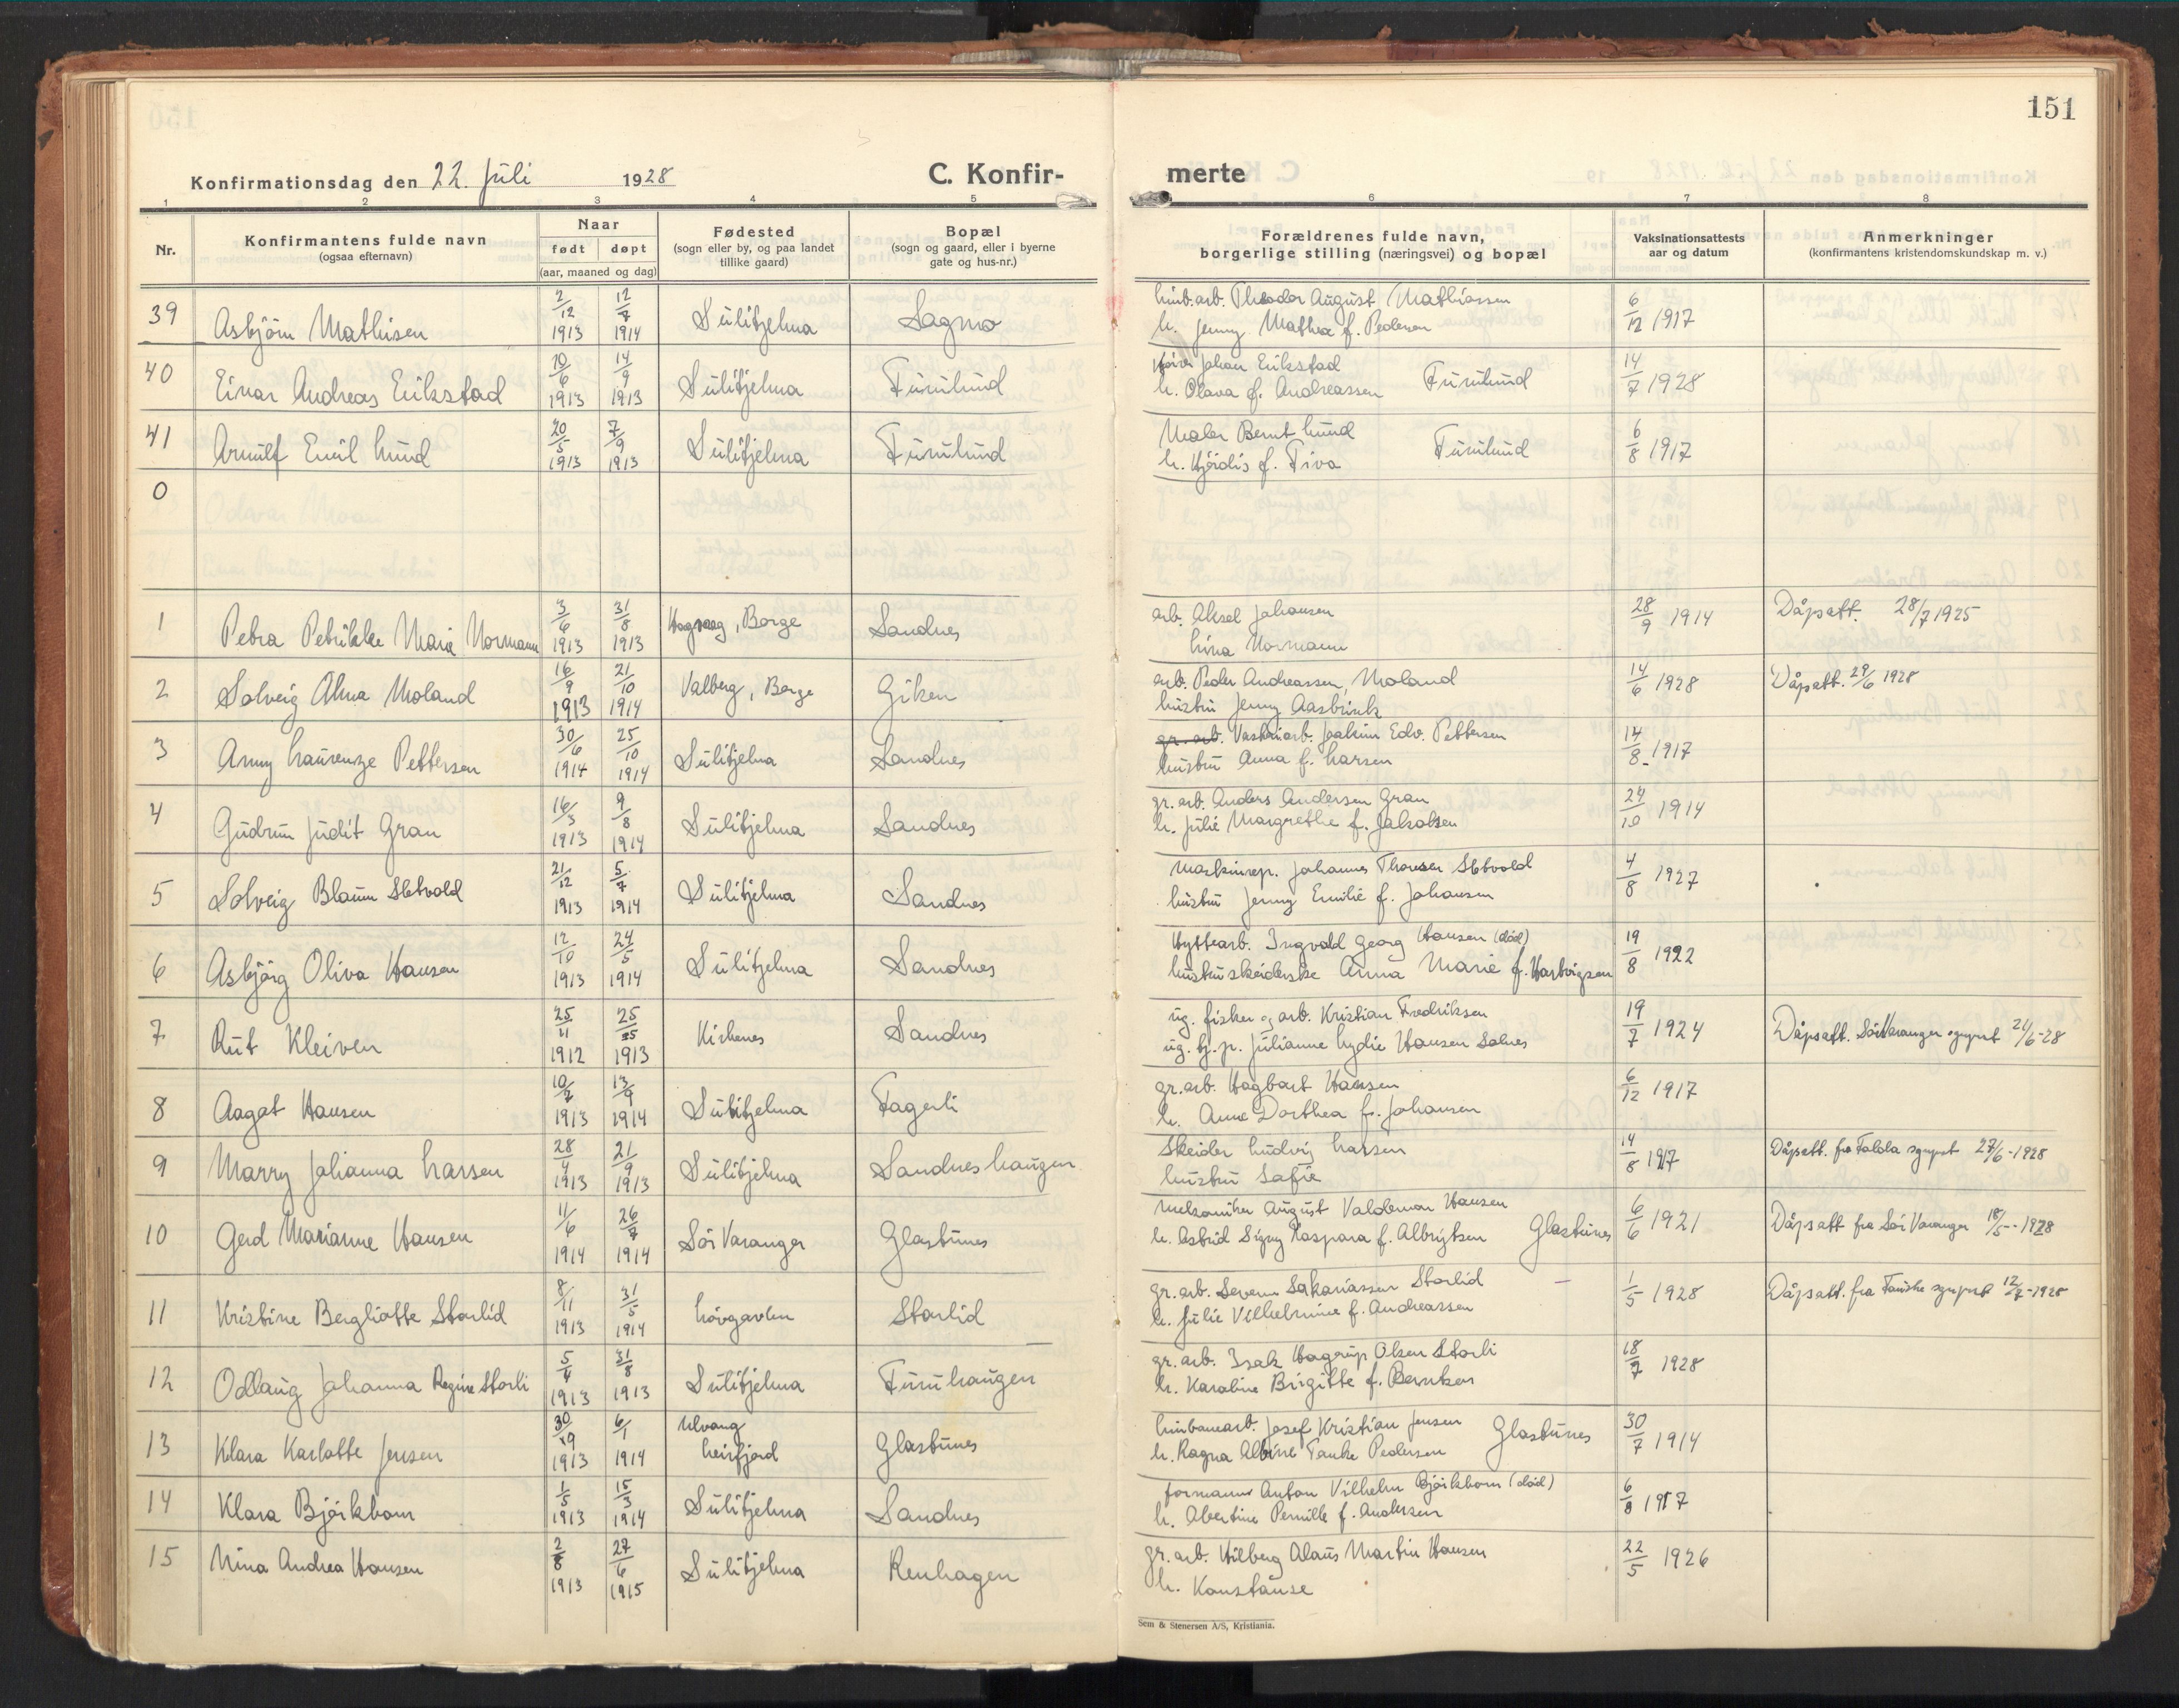 151
Konfirmationsdag den 22. Juli 1928
C. Konfir-
merte
1 2 3 4 5 6 7 8
Nr.
Konfirmantens fulde navn
(ogsaa efternavn)
Naar
født døpt
(aar, maaned og dag)
Fødested
(sogn eller by, og paa landet
tillike gaard)
Bopæl
(sogn og gaard, eller i byerne
gate og hus-nr.)
Forældrenes fulde navn,
borgerlige stilling (næringsvei) og bopæl
Vaksinationsattests
aar og datum
Anmerkninger
(konfirmantens kristendomskundskap m. v.)
39 Asbjörn Mathisen 2/12 1913 12/7 1914 Sulitjelma Sagmo
linb.arb. Theodor August Mathiassen 6/12 1917
h. Jenny Mathea f. Pedersen
40 Einar Andreas Erikstad 10/6 1913 14/9 1913 Sulitjelma Furulund
Johan Erikstad Furulund 14/7 1928
h. Olava f. Andreassen
41 Arnulf Emil Lund 20/5 1913 7/9 1913 Sulitjelma Furulund
Maler Bernt Lund Furulund 6/8 1917
h. Hjördis f. Tiva
0
1 Petra Petrikke Marie Normann 3/6 1913 31/8 1913 , Borge Sandnes
arb. Aksel Johansen 28/9 1914 Dåpsatt. 28/7 1925
Lina Normann
2 Solveig Alma Moland 16/9 1913 21/10 1914 Valberg, Borge Giken
arb. Peder Andreassen Moland 14/6 1928 Dåpsatt. 29/6 1928
hustru Jenny Aasbrink
3 Anny Laurenze Pettersen 30/6 1914 25/10 1914 Sulitjelma Sandnes
gr. arb. Vaskeriarb. Joakim Edv. Pettersen 14/8 1917
hustru Anna f. Larsen
4 Gudrun Judit Gran 16/3 1913 9/8 1914 Sulitjelma Sandnes
gr. arb. Anders Andersen Gran 24/10 1914
h. Julie Margrethe f. Jakobsen
5 Solveig Blaum Sletvold 21/12 1913 5/7 1914 Sulitjelma Sandnes
Maskinrep. Johannes Thoresen Sletvold 4/8 1927
hustru Jenny Emilie f. Johansen
6 Asbjörg Oliva Hansen 12/10 1913 24/5 1914 Sulitjelma Sandnes
Hyttearb. Ingvald Georg Hansen (död) 19/8 1922
hustru skeiderske Anna Marie f. Hartvigsen
7 Rut Kleiven 25/11 1912 25/5 1913 Kirkenes Sandnes
ug. fisker og arb. Kristian Fredriksen 19/7 1924 Dåpsatt. Sör Varanger sgnprst 21/6-28
ug. tj. p. Julianne Lydie Hansen Solnes
8 Aagot Hansen 10/7 1913 13/9 1914 Sulitjelma Fagerli
gr. arb. Hagbart Hansen 6/12 1917
h. Anne Dorthea f. Johansen
9 Marry Johanna Larsen 28/4 1913 21/9 1913 Sulitjelma Sandneshaugen
Skeider Ludvig Larsen 14/8 1917 Dåpsatt. fra Foldla sgnprst 27/6-1928
hustru Sofie
10 Gerd Marianne Hansen 11/6 1914 26/7 1914 Sör Varanger Glastunes
Mekaniker August Valdemar Hansen 6/6 1921 Dåpsatt fra Sör Varanger 18/5-1928
h. Astrid Signy Kaspara f. Albrigtsen Glastunes
11 Kristine Bergliotte Storlid 8/11 1913 31/5 1914 Lövgavlen Storlid
gr. arb. Severin Sakariassen Storlid — 1/5 1928 Dåpsatt. fra Fauske sgnprst 12/7-1928
h. Julie Vilhelmine f. Andreassen
12 Odlaug Johanna Regine Storli 5/4 1913 31/8 1913 Sulitjelma Furuhaugen
gr. arb. Isak Hagerup Olsen Storli 18/7 1928
h. Karoline Brigitte f. Berntsen
13 Klara Karlotte Jensen 30/9 1913 6/1 1914 Ulvang Leirfjord Glastunes
linbanearb. Josef Kristian Jensen Glastunes 30/7 1914
h. Ragna Albine Tanke Pedersen
14 Klara Björkbom 1/5 1913 15/3 1914 Sulitjelma Sandnes
formann Anton Vilhelm Björkbom (död) 6/8 1917
h. Albertine Pernille f. Andersen
15 Nina Andrea Hansen 2/8 1913 27/6 1915 Sulitjelma Renhagen
gr. arb. Hilberg Olaus Martin Hansen 22/5 1926
h. Konstanse
Sem & Stenersen A/S, Kristiania.